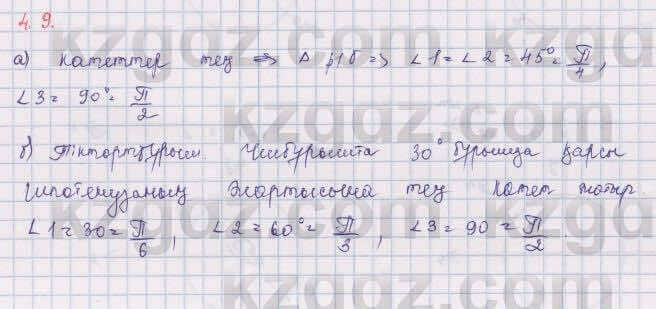 4.9.
а) катеттер тең ⇒ Δ р/б ⇒ ∠1 = ∠2 = 45° = π/4,
∠3 = 90° = π/2
б) Тіктөртбұрыш. Үшбұрышта 30° бұрышқа қарсы
гипотенузаның жартысына тең катет жатыр.
∠1 = 30 = π/6, ∠2 = 60° = π/3, ∠3 = 90 = π/2